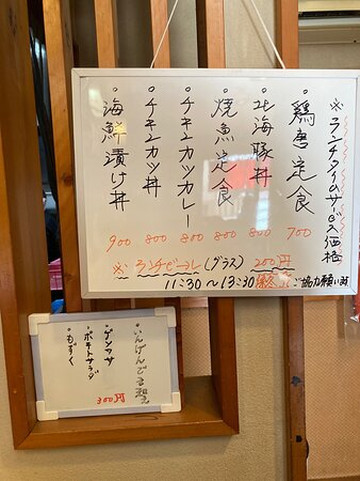 ※ランチタイムサービス価格
・鶏唐定食 700
・北海豚丼 800
・焼魚定食 800
・チキンカツカレー 800
・チキンカツ丼 800
・海鮮漬け丼 900
※ランチビール(グラス) 200円
11:30〜13:30 ご協力願い〼
・いんげんごま和え
・ゲンマサ
・ポテトサラダ
・もずく
300円